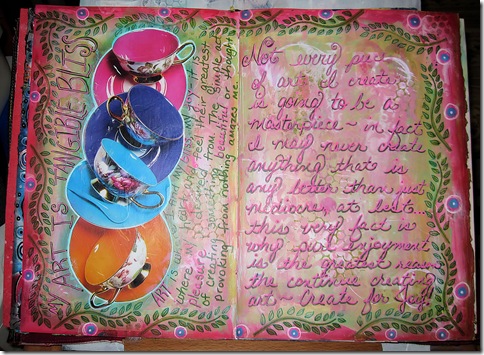 ART IS TANGIBLE BLISS
ART is my heart my joy - it is
where my feel their greatest
pleasure derived from the simple act
of creating something beautiful or thought
provoking from nothing amazes me.
Not every piece
of art I create
is going to be a
masterpiece ~ in fact
I may never create
anything that is
any better than just
mediocre, at best...
this very fact is
why pure enjoyment
is the greatest reason
the continue creating
art ~ Create for Joy!